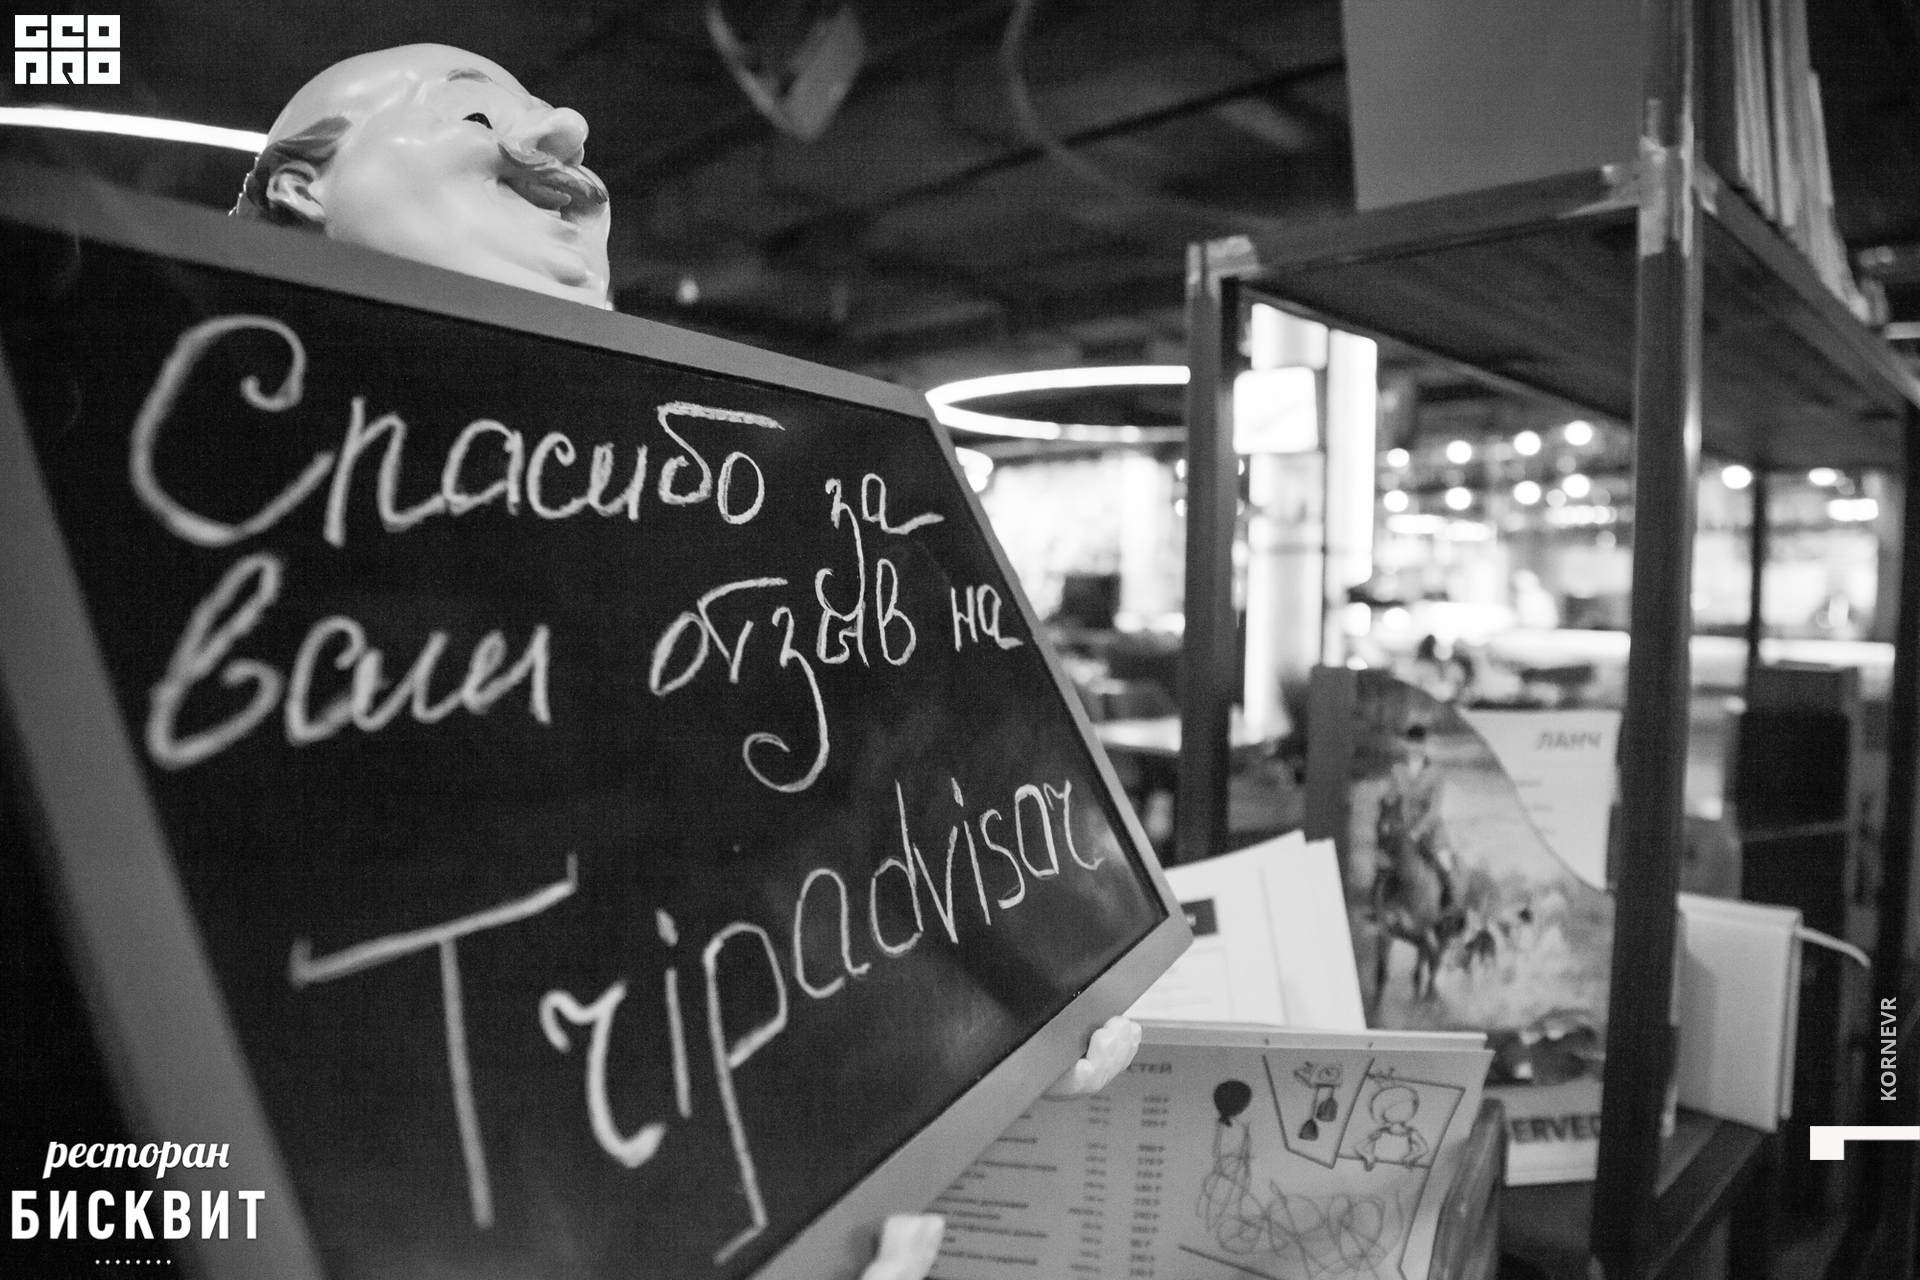 GEO
PRO
Спасибо за
ваш отзыв на
Tripadvisor
ЛАНЧ
ERVED
KORNEVR
ресторан
БИСКВИТ